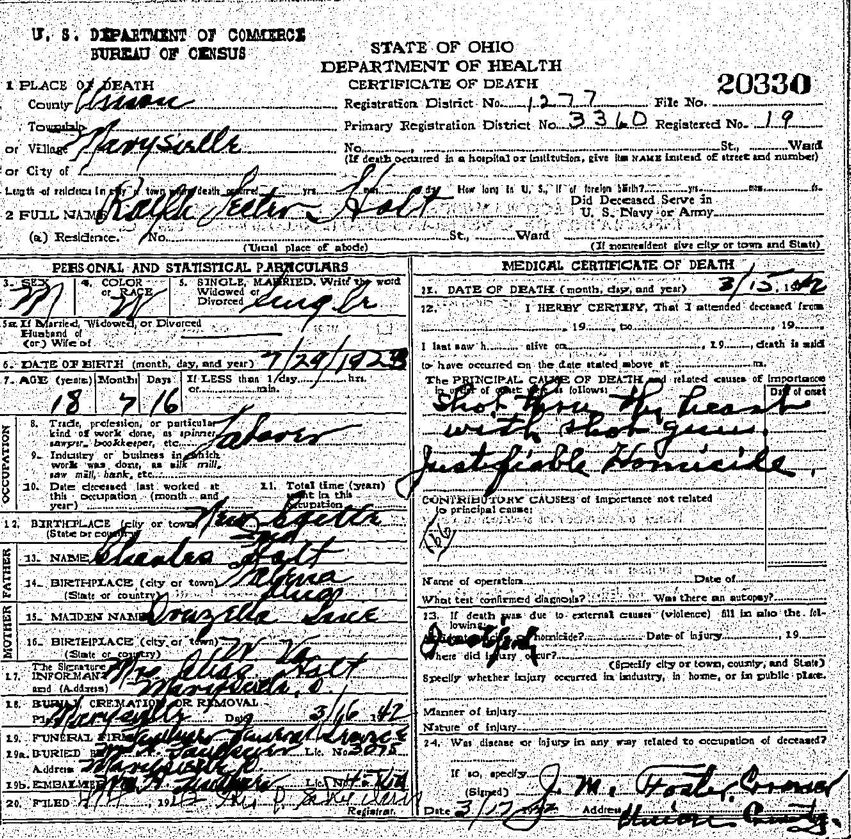 U. S. DEPARTMENT OF COMMERCE
BUREAU OF CENSUS
STATE OF OHIO
DEPARTMENT OF HEALTH
CERTIFICATE OF DEATH
20330
1 PLACE OF DEATH
County Union
Registration District No. 1277 File No.
Township
Primary Registration District No. 3360 Registered No. 19
or Village Marysville
No. St., Ward
or City of
(If death occurred in a hospital or institution, give its NAME instead of street and number)
Length of residence in city or town where death occurred yrs. mos. ds. How long in U. S., if of foreign birth? yrs. mos. ds.
2 FULL NAME Ralph Holt
Did Deceased Serve in
U. S. Navy or Army
(a) Residence. No. St., Ward
(Usual place of abode) (If nonresident give city or town and State)
PERSONAL AND STATISTICAL PARTICULARS
3. SEX M
4. COLOR or RACE W
5. SINGLE, MARRIED, Write the word
Widowed or
Divorced Single
5a. If Married, Widowed, or Divorced
Husband of
(or) Wife of
6. DATE OF BIRTH (month, day, and year) 7/29/1923
7. AGE (years) Months Days If LESS than 1/day hrs.
or min.
18 7 16
OCCUPATION
8. Trade, profession, or particular
kind of work done, as spinner,
sawyer, bookkeeper, etc. Laborer
9. Industry or business in which
work was done, as silk mill,
saw mill, bank, etc.
10. Date deceased last worked at
this occupation (month and
year)
11. Total time (years)
spent in this
occupation
12. BIRTHPLACE (city or town) New
(State or country)
FATHER
13. NAME Charles Holt
14. BIRTHPLACE (city or town)
(State or country)
MOTHER
15. MAIDEN NAME
16. BIRTHPLACE (city or town)
(State or country) W Va
17. The Signature
INFORMANT Mrs Holt
and (Address) Marysville, O.
18. BURIAL, CREMATION OR REMOVAL
Marysville Date 3/16 1942
19. FUNERAL FIRM Funeral Service
19a. BURIED BY Lic. No.
Address Marysville O
19b. EMBALMER Lic. No.
20. FILED 19
Registrar.
MEDICAL CERTIFICATE OF DEATH
21. DATE OF DEATH (month, day, and year) 3/15 1942
22. I HEREBY CERTIFY, That I attended deceased from
, 19 , to , 19 ,
I last saw h alive on , 19 , death is said
to have occurred on the date stated above at m.
The PRINCIPAL CAUSE OF DEATH and related causes of importance
in order of onset as follows: Date of onset
Shot thru the heart
with shot gun.
Justifiable Homicide.
CONTRIBUTORY CAUSES of importance not related
to principal cause:
166
Name of operation Date of
What test confirmed diagnosis? Was there an autopsy?
23. If death was due to external causes (violence) fill in also the fol-
lowing:
homicide? Date of injury , 19
Where did injury occur?
(Specify city or town, county, and State)
Specify whether injury occurred in industry, in home, or in public place.
Manner of injury
Nature of injury
24. Was disease or injury in any way related to occupation of deceased?
If so, specify
(Signed) J. M. Foster, Coroner
Date 3/17 1942 Address Union County.